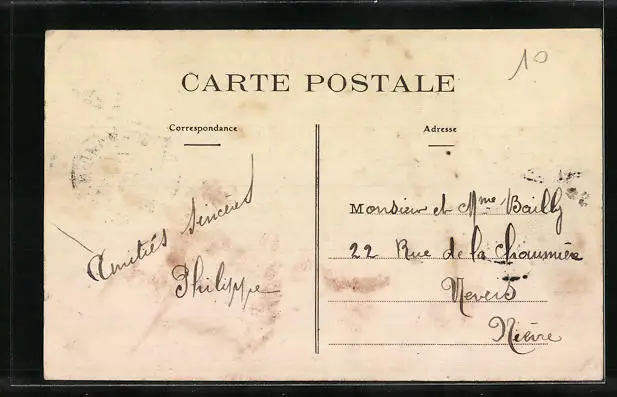 10
CARTE POSTALE
Correspondance
Adresse
Amitiés sincères
Philippe
Monsieur et Mme Bailly
22 Rue de la Chaumière
Nevers
Nièvre